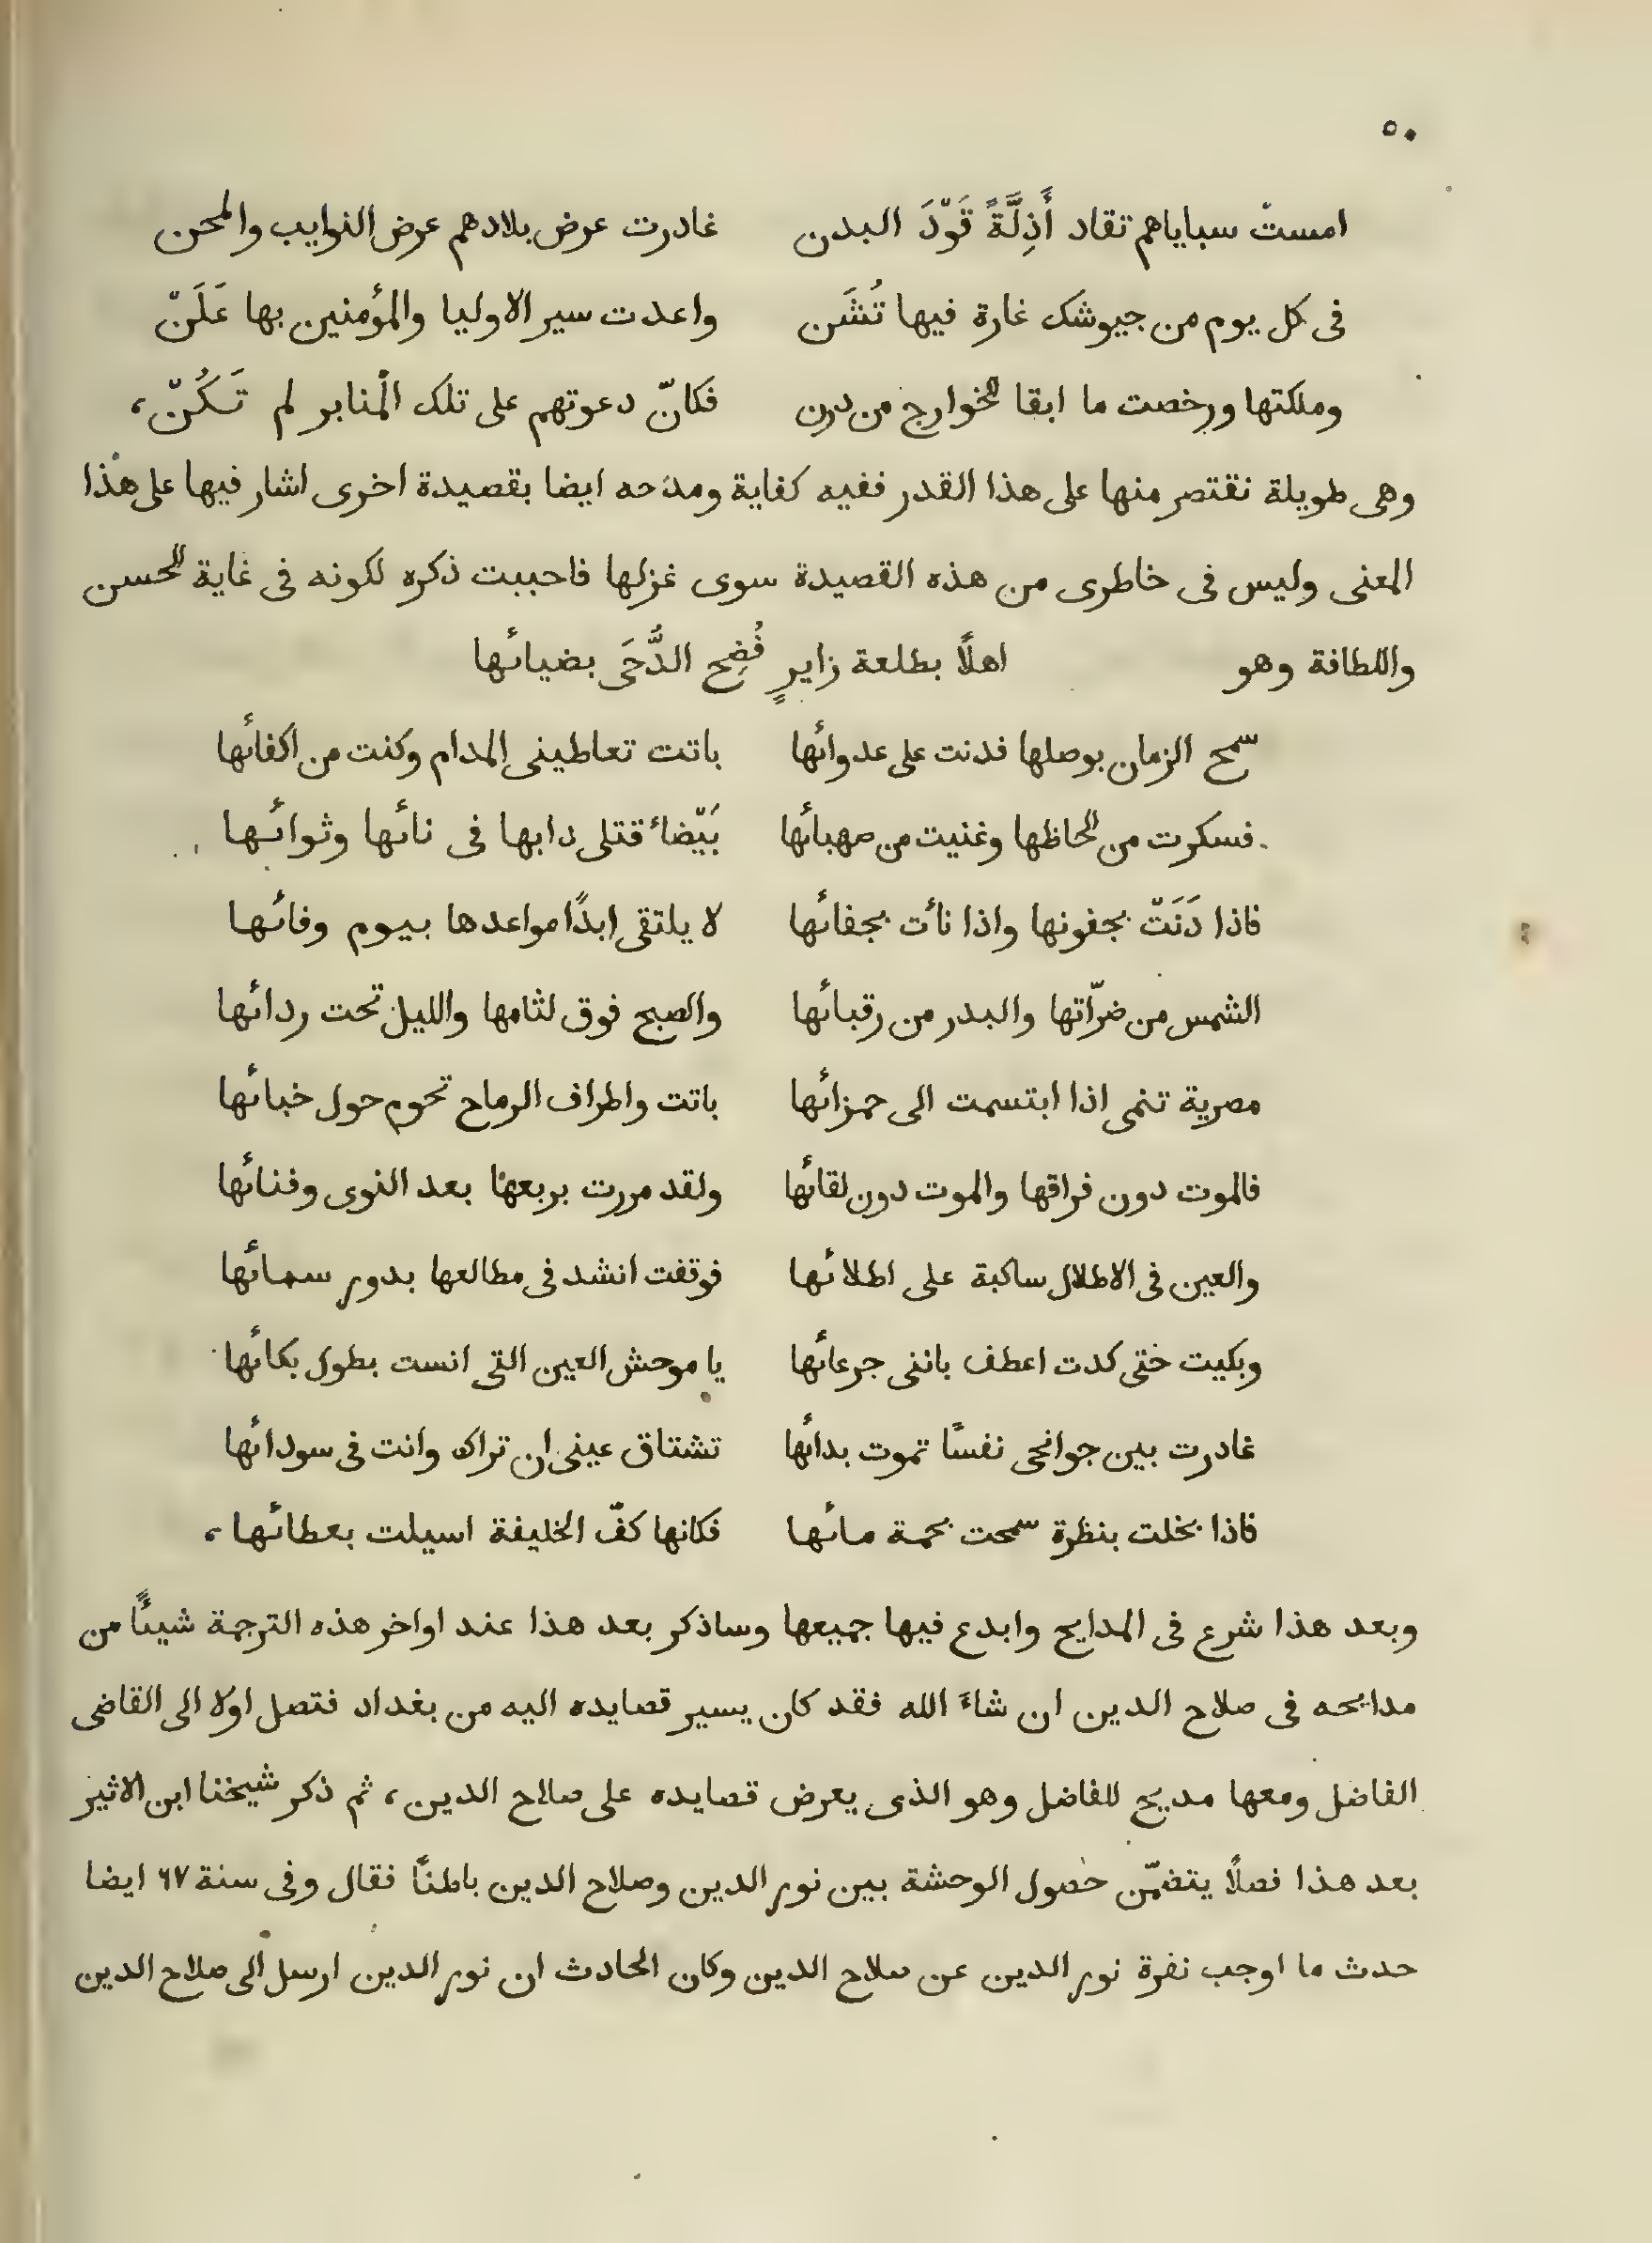 ٥٠
امست سباياهم تقاد أَذِلَّةً قَوّدَ البدن غادرت عرض بلادهم عرض النوايب والمحن
فى كل يوم من جيوشك غارة فيها تُشَن واعدت سير الاوليا والمؤمنين بها عَلَنّ
وملكتها ورخصت ما ابقا الخوارج من درن فكانّ دعوتهم على تلك المنابر لم تَكُنّ،
وهى طويلة نقتصر منها على هذا القدر ففيه كفاية ومدحه ايضا بقصيدة اخرى اشار فيها على هذا
المعنى وليس فى خاطرى من هذه القصيدة سوى غزلها فاحببت ذكره لكونه فى غاية الحسن
واللطافة وهو اهلًا بطلعة زايرٍ فُضِح الدُّجَى بضيائها
سمح الزمان بوصلها فدنت على عدوائها باتت تعاطينى المدام وكنت من اكفائها
فسكرت من الحاظها وغنيت من صهبائها بَيّضاء قتلى دابها فى نائها وثوائها
فاذا دَنَتّ بجفونها واذا نأت بجفائها لا يلتقى ابدًا مواعدها بيوم وفائها
الشمس من ضرّاتها والبدر من رقبائها والصبح فوق لثامها والليل تحت ردائها
مصرية تنمى اذا ابتسمت الى حمزائها باتت واطراف الرماح تحوم حول خبائها
فالموت دون فراقها والموت دون لقائها ولقد مررت بربعها بعد النوى وفنائها
والعين فى الاطلال ساكبة على اطلائها فوقفت انشد فى مطالعها بدور سمائها
وبكيت حتى كدت اعطف بانتى جرعائها يا موحش العين التى انست بطول بكائها
غادرت بين جوانحى نفسًا تموت بدائها تشتاق عينى ان تراك وانت فى سودائها
فاذا بخلت بنظرة سمحت بجمة مائها فكانها كفّ الخليفة اسيلت بعطائها،
وبعد هذا شرع فى المدايح وابدع فيها جميعها وساذكر بعد هذا عند اواخر هذه الترجمة شيئًا من
مدايحه فى صلاح الدين ان شاء الله فقد كان يسير قصايده اليه من بغداد فتصل اولا الى القاضى
الفاضل ومعها مديح للفاضل وهو الذى يعرض قصايده على صالح الدين، ثم ذكر شيخنا ابن الاثير
بعد هذا فصلًا يتضمّن حصول الوحشة بين نور الدين وصلاح الدين باطنًا فقال وفى سنة ٦٧ ايضا
حدث ما اوجب نفرة نور الدين عن صلاح الدين وكان الحادث ان نور الدين ارسل الى صلاح الدين